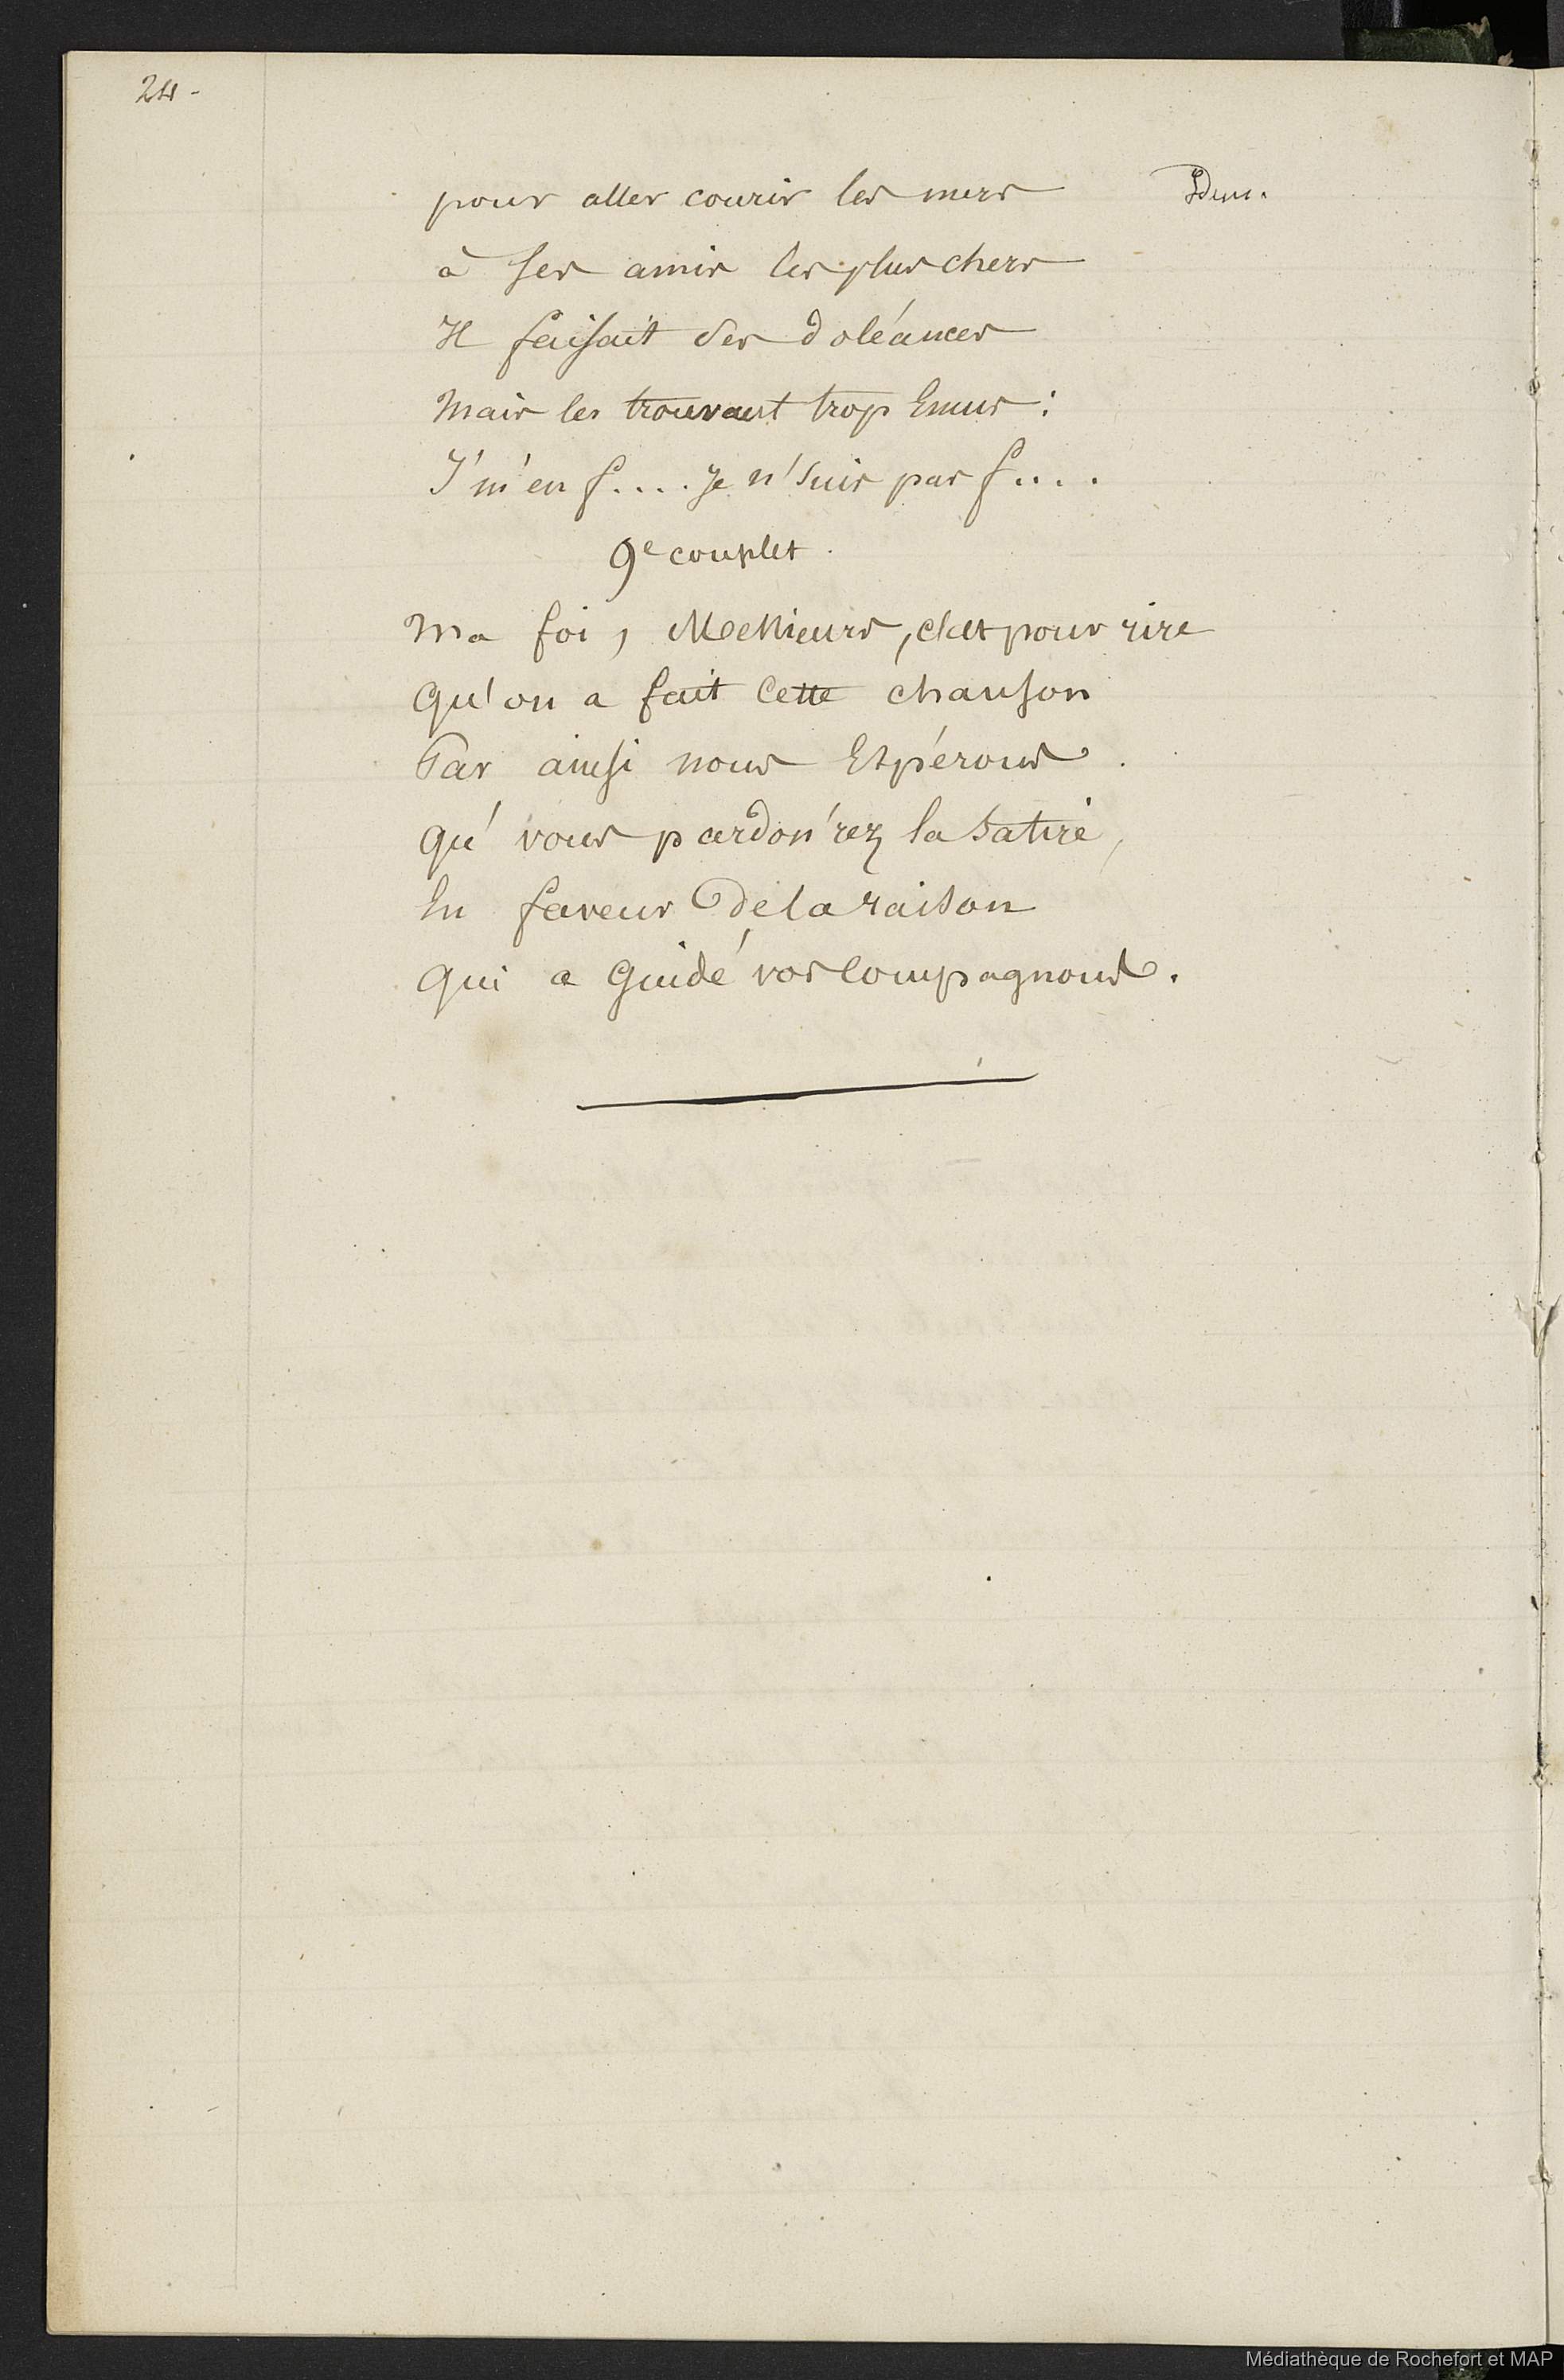 24-
pour aller courir les mers
à ses amis les plus chers
Il faisait des doléances
Mais les trouvant trop Emus :
J'm'en f.... Je n'suis pas f....
9e couplet.
Ma foi, Messieurs, c'est pour rire
Qu'on a fait Cette chanson
Par ainsi nous Espérons
Qu' vous pardon'rez la Satire,
En faveur de la raison
Qui a Guidé vos Compagnons.
Médiathèque de Rochefort et MAP